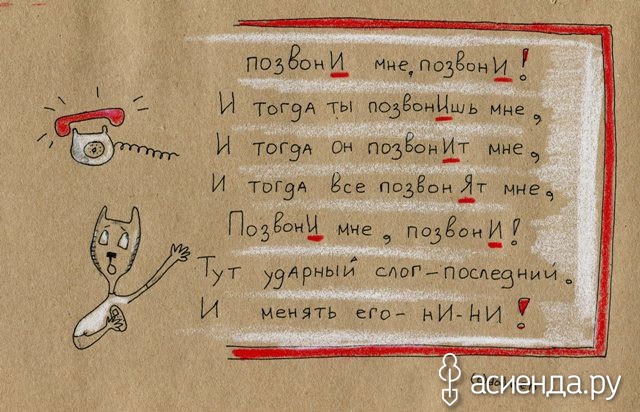 позвонИ мне, позвонИ!
И тогда ты позвонИшь мне,
И тогда он позвонИт мне,
И тогда все позвонЯт мне,
ПозвонИ мне, позвонИ!
Тут ударный слог-последний.
И менять его- нИ-нИ!
асиенда.ру